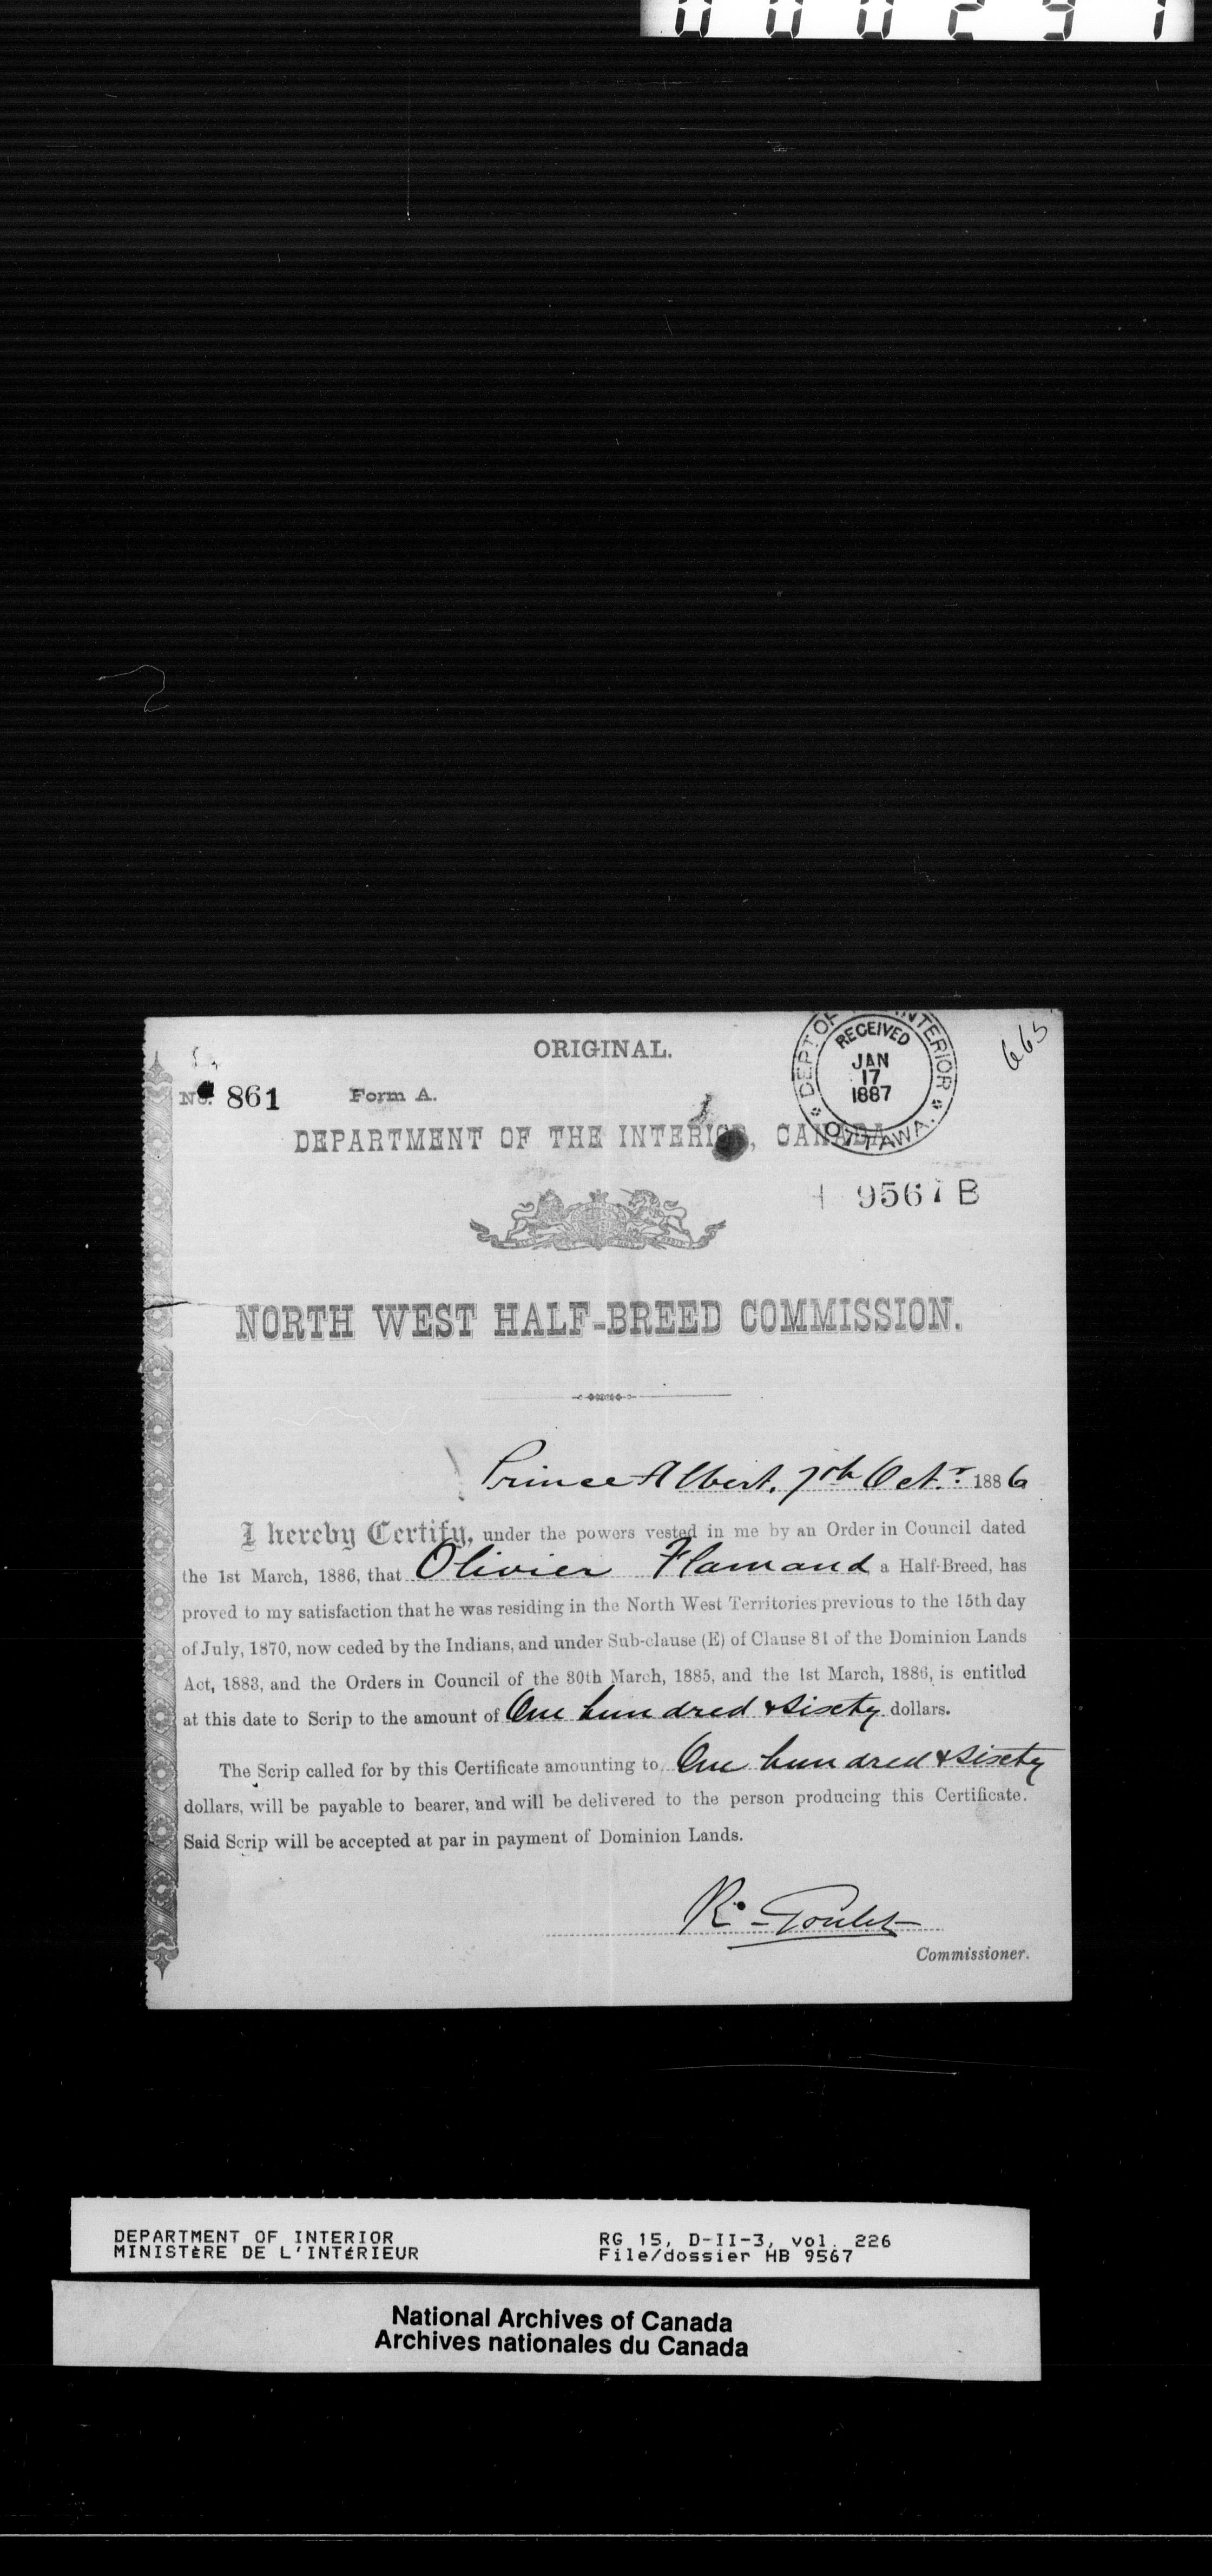 000297
ORIGINAL.
665
DEPT OF INTERIOR
RECEIVED
JAN
17
1887
OTTAWA.
No. 861 Form A.
DEPARTMENT OF THE INTERIOR, CANADA
9567 B
NORTH WEST HALF-BREED COMMISSION.
Prince Albert, 7th Octr. 1886
I hereby Certify, under the powers vested in me by an Order in Council dated
the 1st March, 1886, that Olivier Flamand a Half-Breed, has
proved to my satisfaction that he was residing in the North West Territories previous to the 15th day
of July, 1870, now ceded by the Indians, and under Sub-clause (E) of Clause 81 of the Dominion Lands
Act, 1883, and the Orders in Council of the 30th March, 1885, and the 1st March, 1886, is entitled
at this date to Scrip to the amount of One hundred & sixty dollars.
The Scrip called for by this Certificate amounting to One hundred & sixty
dollars, will be payable to bearer, and will be delivered to the person producing this Certificate.
Said Scrip will be accepted at par in payment of Dominion Lands.
R. Goulet
Commissioner.
DEPARTMENT OF INTERIOR RG 15, D-II-3, vol. 226
MINISTÈRE DE L'INTÉRIEUR File/dossier HB 9567
National Archives of Canada
Archives nationales du Canada